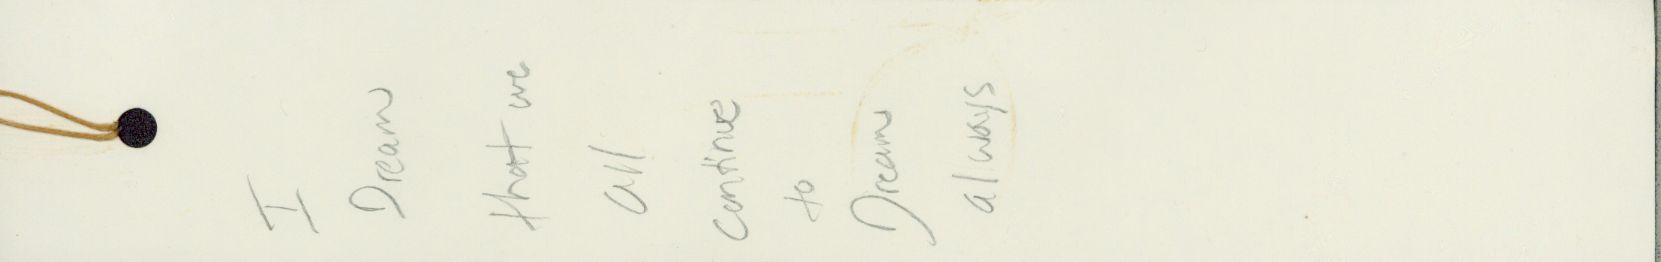 I
Dream
that we
all
continue
to
Dream
always